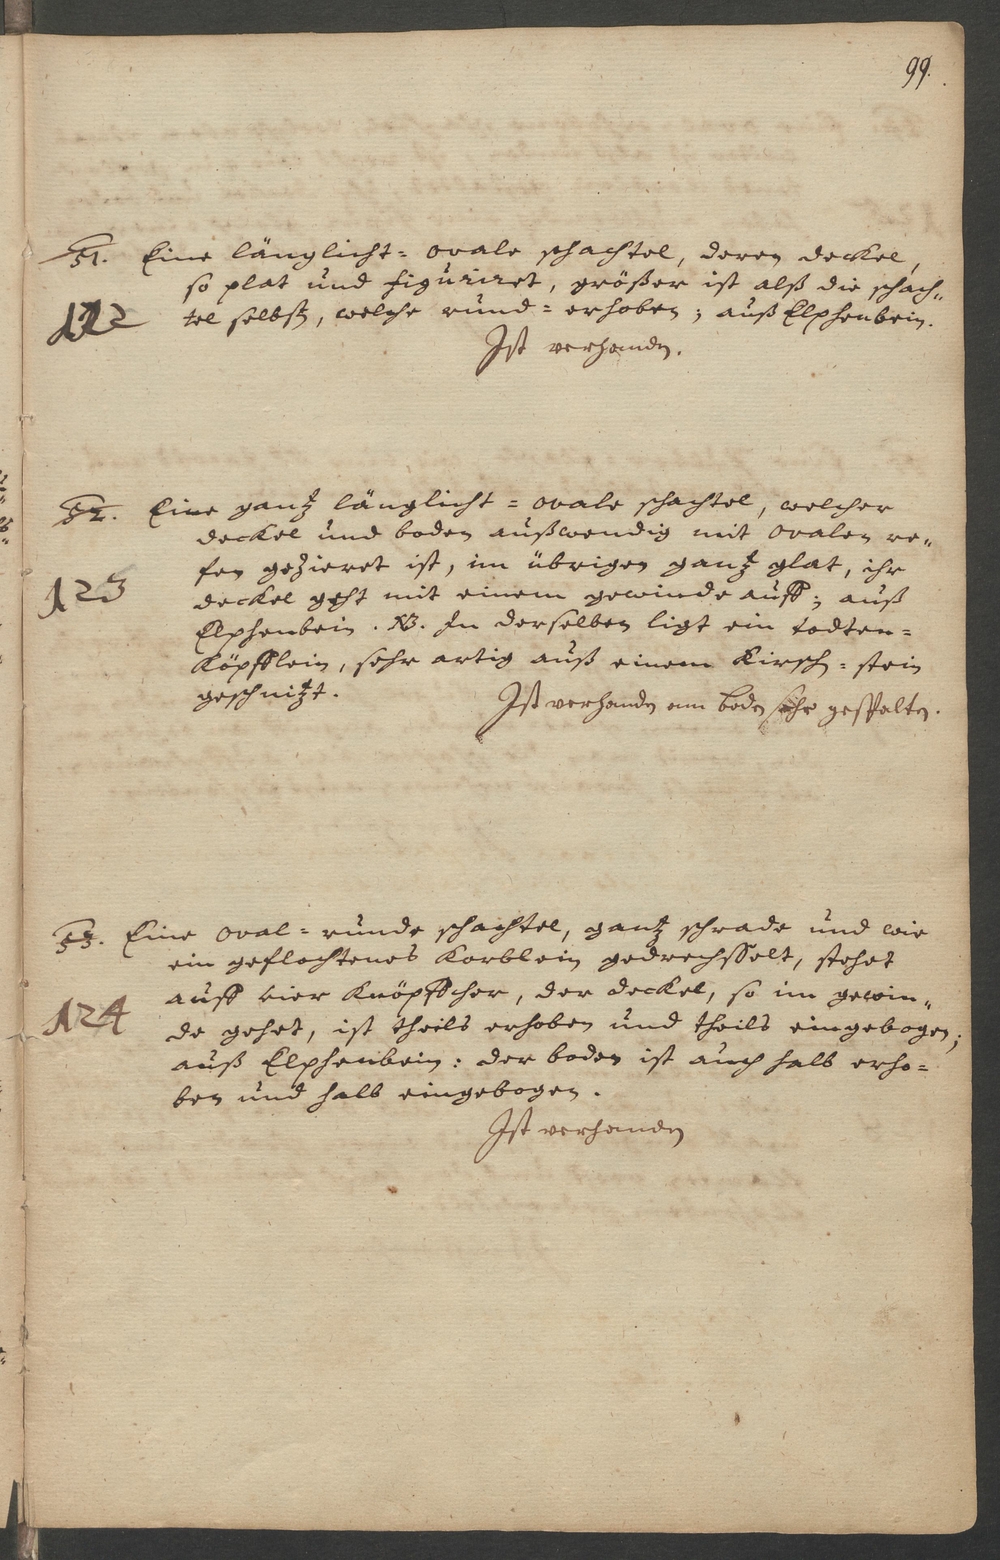 99.
51. Eine länglicht= ovale schachtel, deren deckel,
so plat und figuriret, größer ist alß die schach„
122
tel selbst, welche rund= erhoben; auß Elphenbein.
Ist verhanden.
52. Eine gantz länglicht= ovale schachtel, welcher
deckel und boden außwendig mit ovalen re„
fen gezieret ist, im übrigen gantz glat, ihr
123
deckel geht mit einem gewinde auff; auß
Elphenbein. NB. In derselben ligt ein todten=
Köpfflein, sehr artig auß einem Kirsch= stein
geschnitzt.
Ist verhanden am boden sehr gespalten.
53. Eine oval= runde schachtel, gantz schrade und wie
ein geflochtenes Körblein gedrechsselt, stehet
auff vier Knöpffcher, der deckel, so im gewin„
124
de gehet, ist theils erhoben und theils eingebogen;
auß Elphenbein: der boden ist auch halb erho=
ben und halb eingebogen.
Ist verhanden